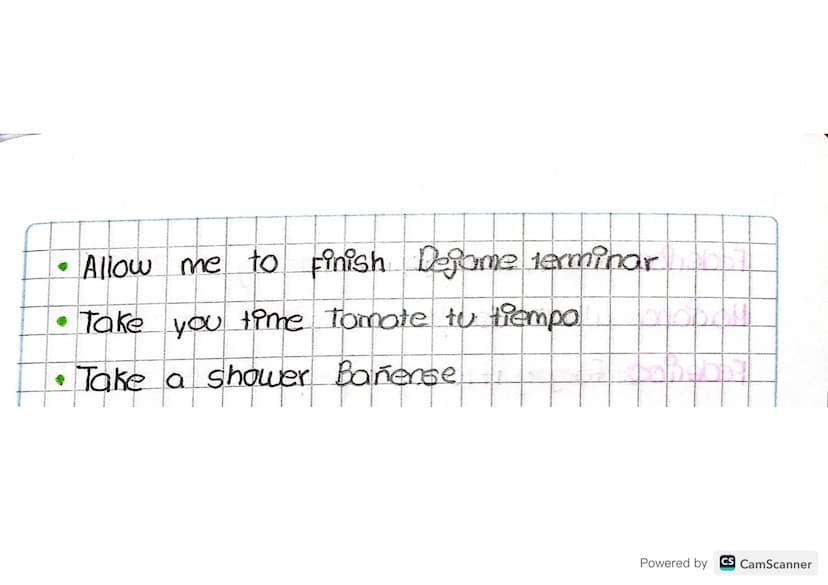 • Allow me to finish Dejame terminar
• Take you time Tomate tu tiempo
• Take a shower Bañense
Powered by CS CamScanner